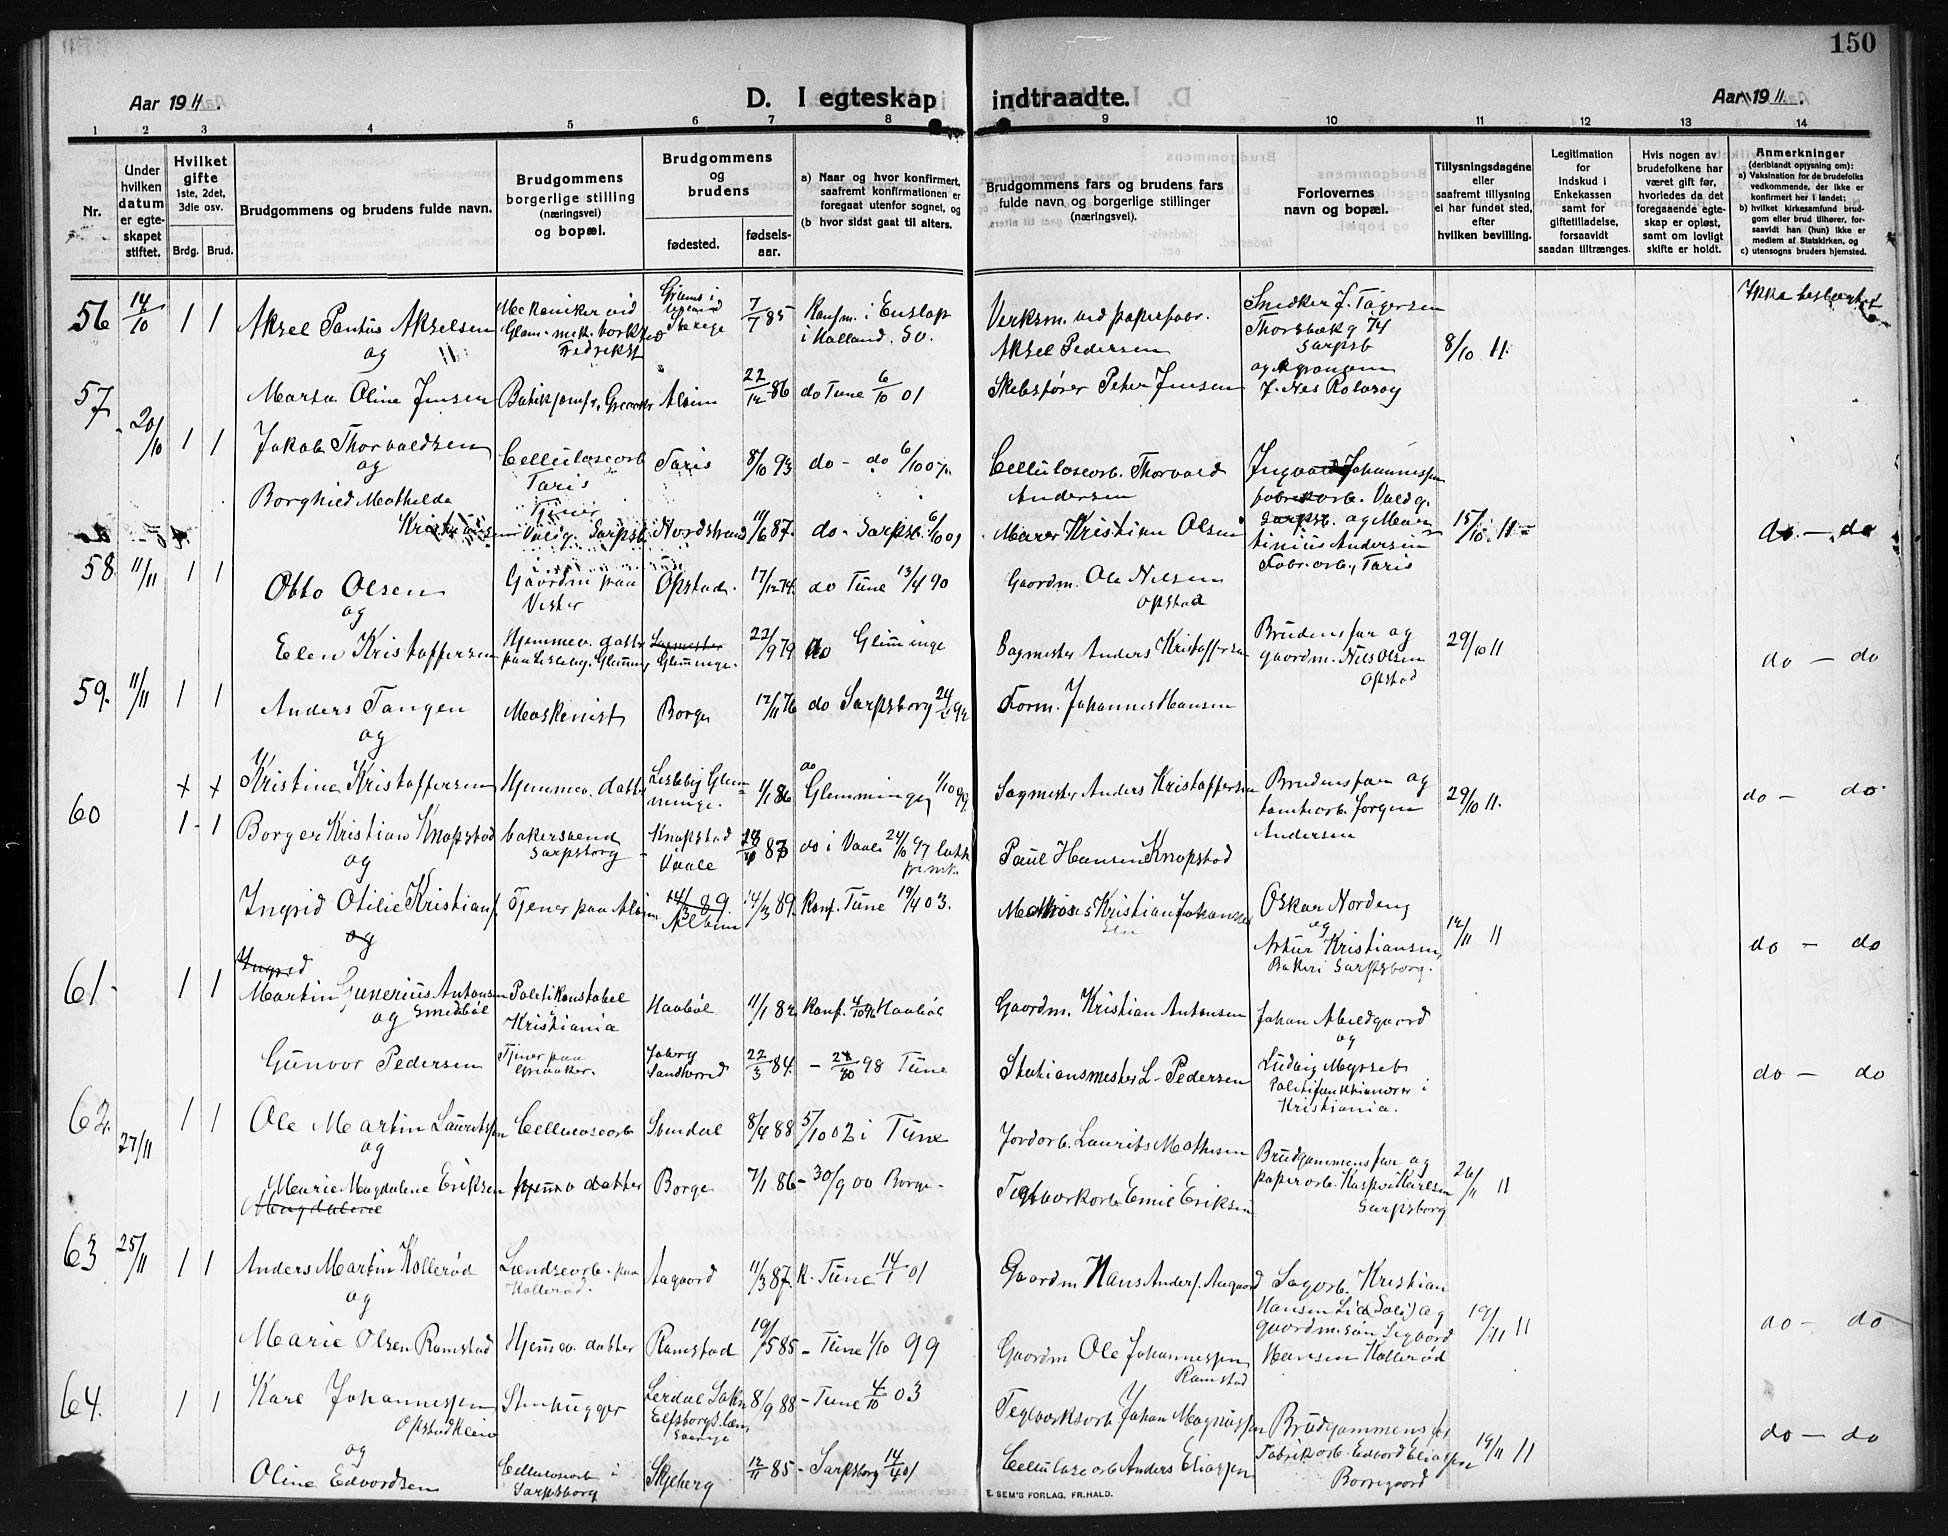 150
Aar 1911.
D. I egteskap indtraadte.
Aar 1911.
1 2 3 4 5 6 7 8 9 10 11 12 13 14
Nr.
Under hvilken datum er egteskapet stiftet.
Hvilket gifte 1ste, 2det, 3die osv.
Brdg. Brud.
Brudgommens og brudens fulde navn.
Brudgommens borgerlige stilling (næringsvei) og bopæl.
Brudgommens og brudens
fødested.
fødselsaar.
a) Naar og hvor konfirmert, saafremt konfirmationen er foregaat utenfor sognet, og
(b hvor sidst gaat til alters.
Brudgommens fars og brudens fars fulde navn og borgerlige stillinger (næringsvei).
Forlovernes navn og bopæl.
Tillysningsdagene eller saafremt tillysning ei har fundet sted, efter hvilken bevilling.
Legitimation for indskud i Enkekassen samt for giftetilladelse, forsaavidt saadan tiltrænges.
Hvis nogen av brudefolkene har været gift før, hvorledes da det foregaaende egteskap er opløst, samt om lovligt skifte er holdt.
Anmerkninger (deriblandt opysning om):
a) Vaksination for de brudefolks vedkommende, der ikke er konfirmert her i landet;
b) hvilket kirkesamfund brudgom eller brud tilhører, forsaavidt han (hun) ikke er medlem af Statskirken, og
c) utensogns bruders hjemsted.
56 14/10 1 1 Aksel Pontus Akselsen Mekaniker ved Glom. mek. Fredrikst 7/7 85 Konfm. i Enslöp i Halland. Verksm. ved papirfabr. Aksel Pedersen Snedker J. Tagersen Thorsbækg 74 Sarpsb 8/10 11. Ikke beslægtet
og
Marta Oline Jensen Alvim 22/12 86 do Tune 6/10 01 Skibsfører Peter Jensen J. Næs Rolvsøy
57 20/10 1 1 Jakob Thorvaldsen Celluloseorb Taris Taris 8/10 93 do - do 6/10 07. Celluloseorb. Thorvald Andersen Ingvald Johannessen fabrikorb. Valdg. Sarpsb.
og
Borghild Mathilde Tjener Valdg. Sarpsb Nordstrand 11/6 87. do - Sarpsb 6/10 01 Murer Kristian Olsen og Martinius Andersen Fabr.orb, Taris 15/10 11 do - do
58 11/11 1 1 Otto Olsen Gaardm paa Vister Opstad. 17/12 74. do Tune 13/4 90 Gaardm. Ole Nilsen Opstad
og
Elen Kristoffersen Hjemmev. datter paa Lisleby. Glemminge. 22/9 79 do Glemminge Sagmester Anders Kristoffersen Brudens far og gaardm. Nils Olsen Opstad 29/10 11 do - do
59. 11/11 1 1 Anders Tangen Maskinist Borge 12/11 76 do Sarpsborg Form. Johannes Hansen
og
Kristine Kristoffersen Hjemmev. datter Lisleby Glemminge. 1/1 86 do Glemminge 1/10 99. Sagmester Anders Kristoffersen Brudens far og tomteorb. Jørgen Andersen 29/10 11. do - do
60 1 - 1 Borger Kristian Knapstad bakersvend Sarpsborg Knapstad Vaale do i Vaale 24/10 97 Paul Hansen Knapstad
og
Ingrid Otilie Kristians. Tjener paa Alvim 14/3 89. Alvim 14/3 89. Konf. Tune 19/4 03. Matros Kristian Johannessen Oskar Nordeng og Artur Kristiansen, Baker i Sarpsborg. 12/11 11 do - do
og
Ingrid
61 - 1 1 Martin Gunerius Antonsen Smedbøl Politikonstabel Kristiania Haabøl 11/1 82 Konf. 4/10 96 Haabøl Gaardm. Kristian Antonsen Johan Abildgaard
og
Gunvor Pedersen Tjener paa Greaaker. 22/3 84. - 98 Tune Stationsmester L. Pedersen og Ludvig Myrseth Politifunktionærer i Kristiania. do - do
62. 27/11 1 1 Ole Martin Lauritssen Celluloseorb 8/4 88 5/10 02 i Tune Jordorb. Laurits Mathisen
og
Marie Magdalene Eriksen hjemmev datter Borge 7/1 86 - 30/9 00 Borge - Teglverkorb Emil Eriksen Brudgommens far og paperorb. Kasper Karlsen Sarpsborg 26/11 11
Magdalene
63 25/11 1 1 Anders Martin Kollerød Kollerød. Aagaard 11/3 87. K. Tune 14/1 01 Gaardm Hans Anders. Aagaard Sagorb. Kristian Hansen Lid (Soli) og
og
Marie Olsen Ramstad Hjemmev. datter Ramstad 19/5 85 - Tune 1/10 99 Gaardm Ole Johannessen Ramstad gaardm.søn Sigvard Hansen Kollerød 19/11 11 do - do
64. 1 1 Karl Johannessen Stenhugger Elfsborgs læn, Sverige 8/9 88 - Tune 4/10 03 Teglverksorb Johan Magnussen Brudgommens far
og
Oline Edvardsen Celluloseorb i Sarpsborg Skjeberg 12/11 85 - Sarpsborg 14/4 01 Celluloseorb Anders Eliassen Fabrikorb. Edvard Eliassen Borregaard 19/11 11 do - do
E. SEM'S FORLAG, FR.HALD.